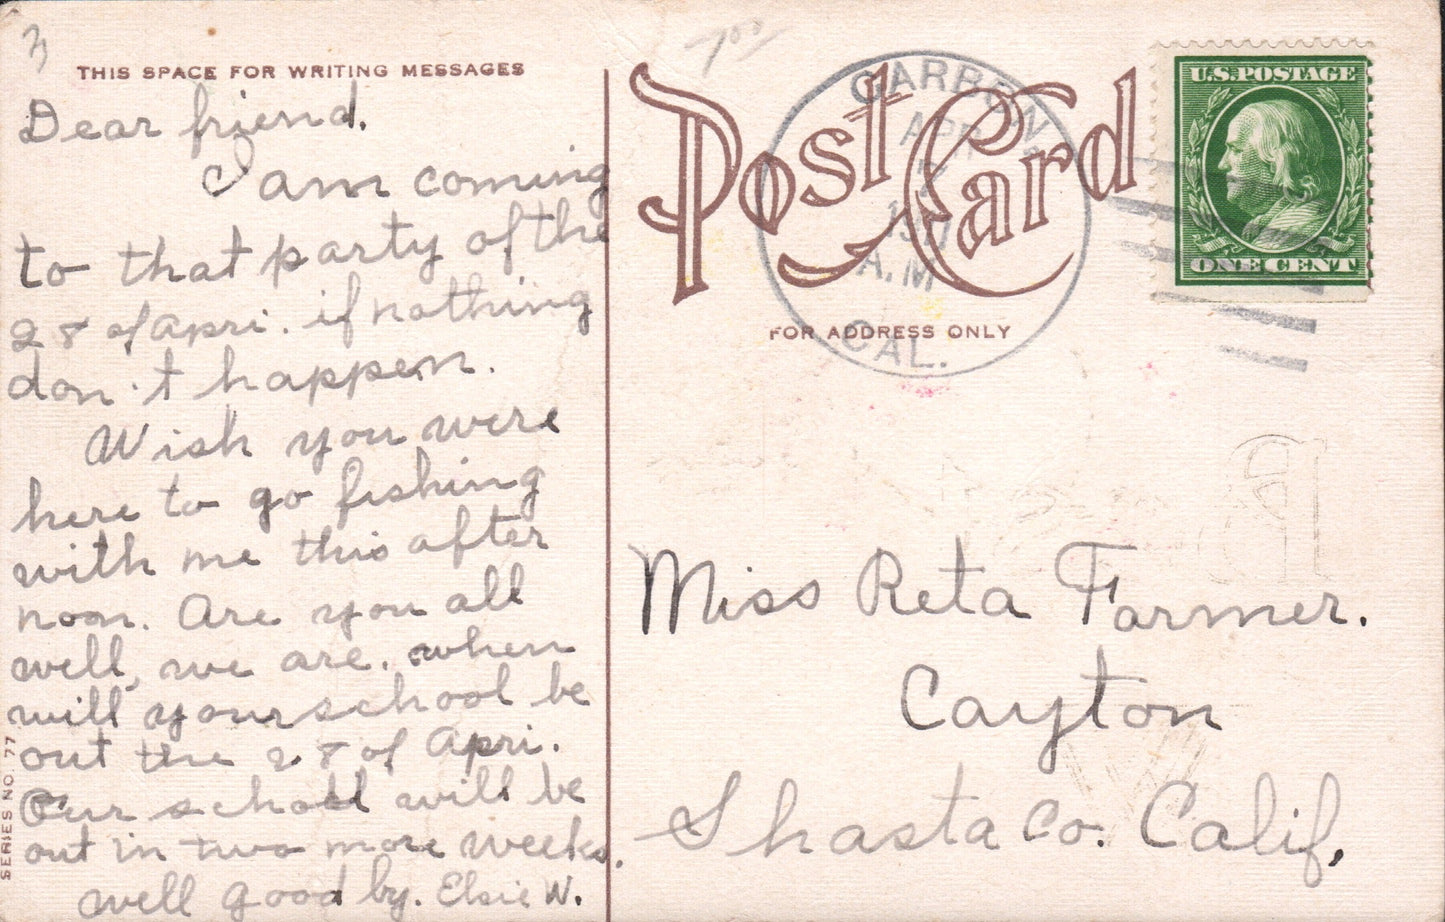 3
THIS SPACE FOR WRITING MESSAGES
Dear friend.
I am coming
to that party of the
28 of Apri. if nothing
don't happen.
Wish you were
here to go fishing
with me this after
noon. Are you all
well, we are. when
will your school be
out the 28 of Apri.
Our school will be
out in two more weeks.
well good by. Elsie W.
SERIES NO. 77
7.00
Post Card
FOR ADDRESS ONLY
CARBON,
APR
A.M
CAL.
U.S. POSTAGE
ONE CENT
Miss Reta Farmer.
Cayton
Shasta Co. Calif,